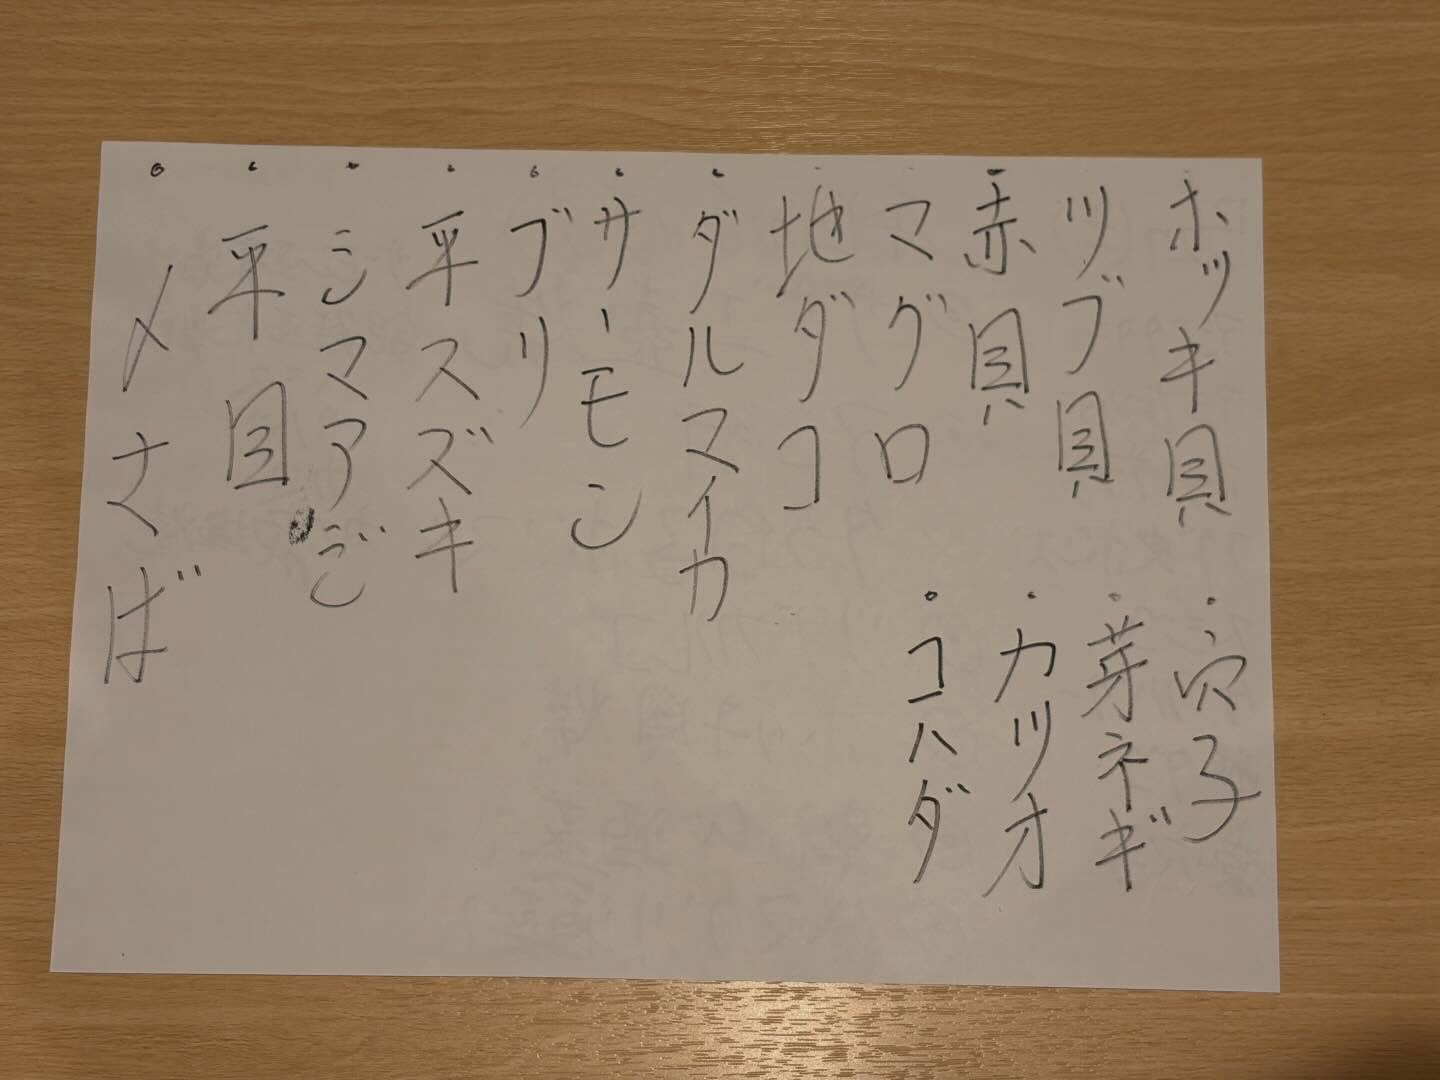 ホッキ貝
ツブ貝
・赤貝
・マグロ
・地ダコ
・ダルマイカ
・サーモン
・ブリ
・平スズキ
・シマアジ
・平目
・〆さば
・穴子
・芽ネギ
・カツオ
・コハダ